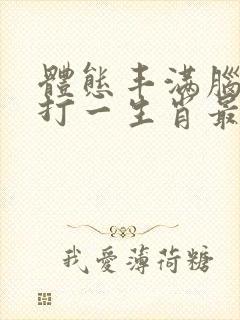 體態丰滿腦
打一生肖最
我愛薄荷糖